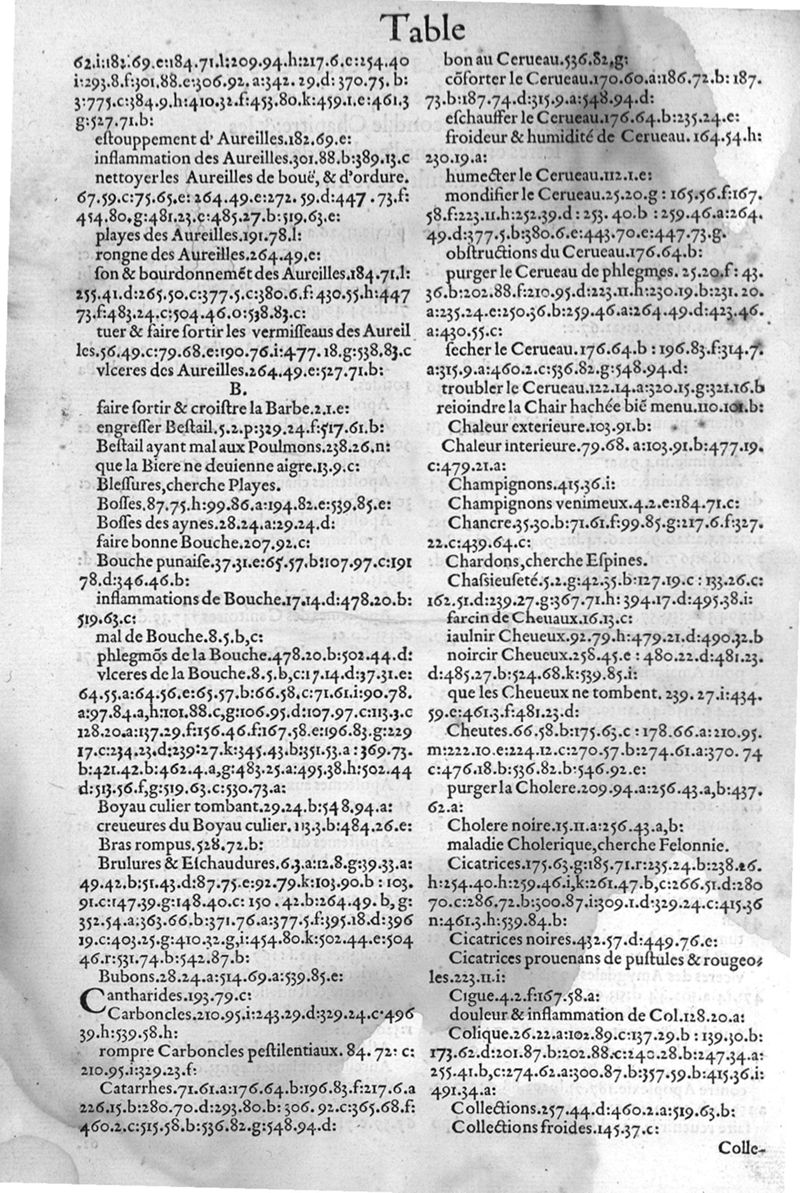 Table
62.i:182.69.e:184.71.l:209.94.h:217.6.e:254.40
i:293.8.f:301.88.e:306.92.a:342.29.d:370.75.b:
3:775.c:384.9.h:410.32.f:453.80.k:459.1.e:461.3
g:527.71.b:
eſtouppement d'Aureilles.182.69.e:
inflammation des Aureilles.301.88.b:389.13.c
nettoyer les Aureilles de bouë, & d'ordure.
67.59.c:75.65.e:264.49.e:272.59.d:447.73.f:
454.80.g:481.23.c:485.27.b:519.63.e:
playes des Aureilles.191.78.l:
rongne des Aureilles.264.49.e:
ſon & bourdonnemẽt des Aureilles.184.71.l:
255.41.d:265.50.c:377.5.c:380.6.f:430.55.h:447
73.f:483.24.c:504.46.o:538.83.c:
tuer & faire ſortir les vermiſſeaus des Aureil
les.56.49.c:79.68.e:190.76.i:477.18.g:538.83.c
vlceres des Aureilles.264.49.e:527.71.b:
B.
faire ſortir & croiſtre la Barbe.2.1.e:
engreſſer Beſtail.5.2.p:329.24.f:517.61.b:
Beſtail ayant mal aux Poulmons.238.26.n:
que la Biere ne deuienne aigre.13.9.c:
Bleſſures,cherche Playes.
Boſſes.87.75.h:99.86.a:194.82.e:539.85.e:
Boſſes des aynes.28.24.a:29.24.d:
faire bonne Bouche.207.92.c:
Bouche punaiſe.37.31.e:65.57.b:107.97.c:191
78.d:346.46.b:
inflammations de Bouche.17.14.d:478.20.b:
519.63.c:
mal de Bouche.8.5.b,c:
phlegmõs de la Bouche.478.20.b:502.44.d:
vlceres de la Bouche.8.5.b,c:17.14.d:37.31.e:
64.55.a:64.56.e:65.57.b:66.58.c:71.61.i:90.78.
a:97.84.a,h:101.88.c,g:106.95.d:107.97.c:113.3.c
128.20.a:137.29.f:156.46.f:167.58.e:196.83.g:229
17.c:234.23.d:239:27.k:345.43.b:351.53.a:369.73.
b:421.42.b:462.4.a,g:483.25.a:495.38.h:502.44
d:513.56.f,g:519.63.c:530.73.a:
Boyau culier tombant.29.24.b:548.94.a:
creueures du Boyau culier.113.3.b:484.26.e:
Bras rompus.528.72.b:
Brulures & Eſchaudures.6.3.a:12.8.g:39.33.a:
49.42.b:51.43.d:87.75.e:92.79.k:103.90.b:103.
91.c:147.39.g:148.40.c:150.42.b:264.49.b,g:
352.54.a:363.66.b:371.76.a:377.5.f:395.18.d:396
19.c:403.25.g:410.32.g,i:454.80.k:502.44.e:504
46.r:531.74.b:542.87.b:
Bubons.28.24.a:514.69.a:539.85.e:
Cantharides.193.79.c:
Carboncles.210.95.i:243.29.d:329.24.c.496
39.h:539.58.h:
rompre Carboncles peſtilentiaux.84.72:c:
210.95.i:329.23.f:
Catarrhes.71.61.a:176.64.b:196.83.f:217.6.a
226.15.b:280.70.d:293.80.b:306.92.c:365.68.f:
460.2.c:515.58.b:536.82.g:548.94.d:
bon au Cerueau.536.82,g:
cõforter le Cerueau.170.60.a:186.72.b:187.
73.b:187.74.d:315.9.a:548.94.d:
eſchauffer le Cerueau.176.64.b:235.24.e:
froideur & humidité de Cerueau.164.54.h:
230.19.a:
humecter le Cerueau.112.1.e:
mondifier le Cerueau.25.20.g:165.56.f:167.
58.f:223.11.h:252.39.d:253.40.b:259.46.a:264.
49.d:377.5.b:380.6.e:443.70.e:447.73.g.
obſtructions du Cerueau.176.64.b:
purger le Cerueau de phlegmes.25.20.f:43.
36.b:202.88.f:210.95.d:223.11.h:230.19.b:231.20.
a:235.24.e:250.36.b:259.46.a:264.49.d:423.46.
a:430.55.c:
ſecher le Cerueau.176.64.b:196.83.f:314.7.
a:315.9.a:460.2.c:536.82.g:548.94.d:
troubler le Cerueau.122.14.a:320.15.g:321.16.b
reioindre la Chair hachée biẽ menu.110.101.b:
Chaleur exterieure.103.91.b:
Chaleur interieure.79.68.a:103.91.b:477.19.
c:479.21.a:
Champignons.415.36.i:
Champignons venimeux.4.2.e:184.71.c:
Chancre.35.30.b:71.61.f:99.85.g:217.6.f:327.
22.c:439.64.c:
Chardons,cherche Eſpines.
Chaſsieuſeté.5.2.g:42.35.b:127.19.c:133.26.c:
162.51.d:239.27.g:367.71.h:394.17.d:495.38.i:
farcin de Cheuaux.16.13.c:
iaulnir Cheueux.92.79.h:479.21.d:490.32.b
noircir Cheueux.258.45.e:480.22.d:481.23.
d:485.27.b:524.68.k:539.85.i:
que les Cheueux ne tombent.239.27.i:434.
59.e:461.3.f:481.23.d:
Cheutes.66.58.b:175.63.c:178.66.a:210.95.
m:222.10.e:224.12.c:270.57.b:274.61.a:370.74
c:476.18.b:536.82.b:546.92.e:
purger la Cholere.209.94.a:256.43.a,b:437.
62.a:
Cholere noire.15.11.a:256.43.a,b:
maladie Cholerique,cherche Felonnie.
Cicatrices.175.63.g:185.71.r:235.24.b:238.26.
h:254.40.h:259.46.i,k:261.47.b,c:266.51.d:280
70.c:286.72.b:300.87.i:309.1.d:329.24.c:415.36
n:461.3.h:539.84.b:
Cicatrices noires.432.57.d:449.76.e:
Cicatrices prouenans de puſtules & rougeo-
les.223.11.i:
Cigue.4.2.f:167.58.a:
douleur & inflammation de Col.128.20.a:
Colique.26.22.a:102.89.c:137.29.b:139.30.b:
173.62.d:201.87.b:202.88.c:240.28.b:247.34.a:
255.41.b,c:274.62.a:300.87.b:357.59.b:415.36.i:
491.34.a:
Collections.257.44.d:460.2.a:519.63.b:
Collections froides.145.37.c:
Colle-